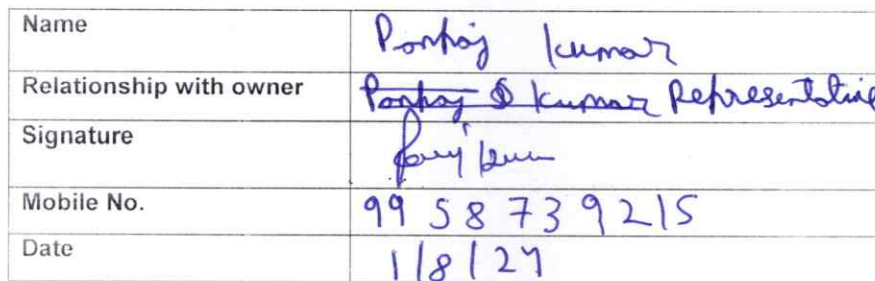 Name Pankaj Kumar
Relationship with owner Pankaj Kumar Representative
Signature
Mobile No. 9958739215
Date 1/8/24